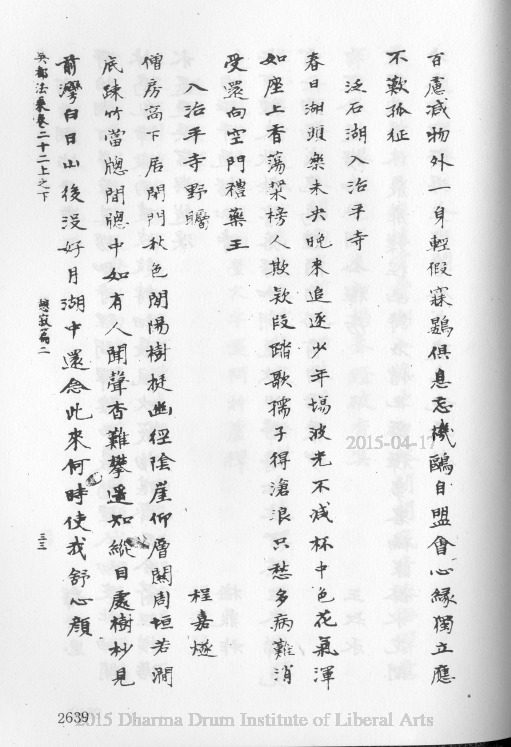 百慮減物外一身輕假寐鷃俱息忘機鷗自盟會心緣獨立應
不歎孤征
泛石湖入治平寺
春日湖頭樂未央晚來追逐少年場波光不減杯中色花氣渾
如座上香蕩槳榜人欺欵段踏歌孺子得滄浪只愁多病難消
受還向空門禮藥王
入治平寺野矚
程嘉燧
僧房高下居閉門秋色閉陽樹挺幽徑陰崖仰層關周垣若澗
底疎竹當牕間牕中如有人聞聲杳難攀遥知縱目處樹杪見
前灣白日山後沒好月湖中還念此來何時使我舒心顏
吳都法乘卷二十二上之下
憩寂篇二
三三
2639
2015-04-17
2015 Dharma Drum Institute of Liberal Arts